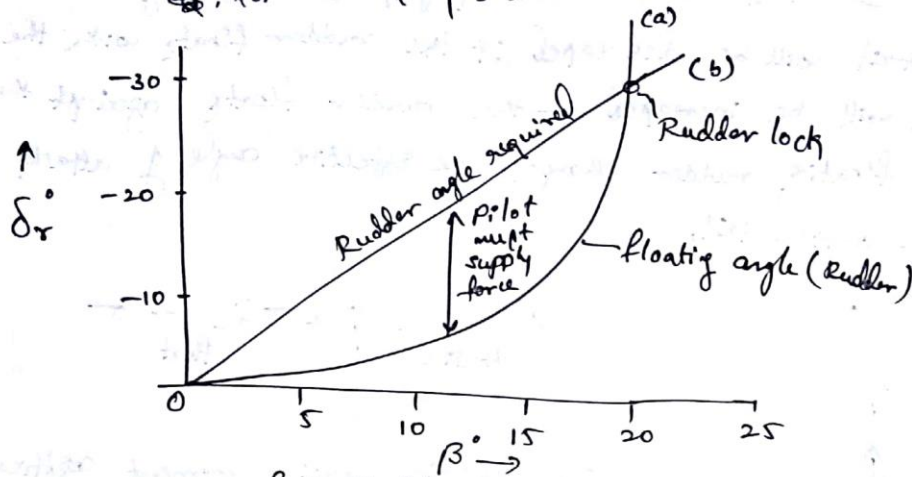 (a)
(b)
-30
Rudder lock
Rudder angle required
↑
δr°
-20
Pilot
must
supply
force
floating angle (Rudder)
-10
0
5
10
15
20
25
β° →